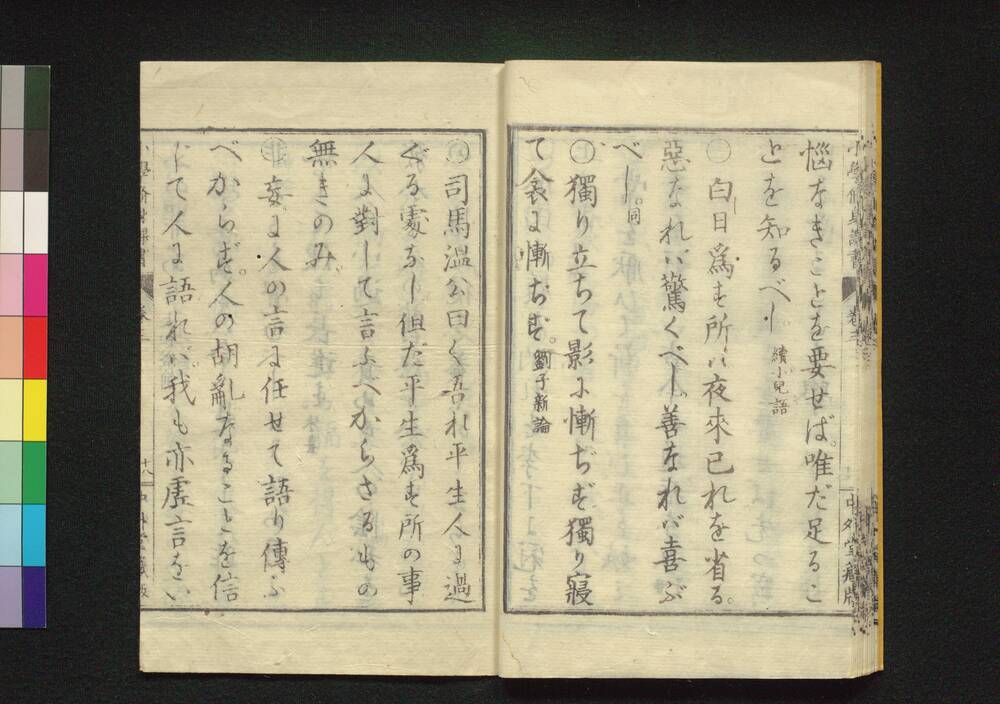 惱なきことを要せば。唯だ足るこ
とを知るべし。續小兒語
○白日爲す所は夜來已れを省る。
惡なれバ驚くべし。善なれバ喜ぶ
べし。同
○獨り立ちて影に慚ぢず獨り寢
て衾に慚ぢず。劉子新論
中外堂藏版
○司馬溫公曰く吾れ平生人に過
ぐる處なし但だ平生爲す所の事
人に對して言ふへからざるもの
無きのみ
○妄に人の言に任せて語り傳ふ
べからず。人の胡亂なることを信
じて人に語れバ。我も亦虛言をい
十八